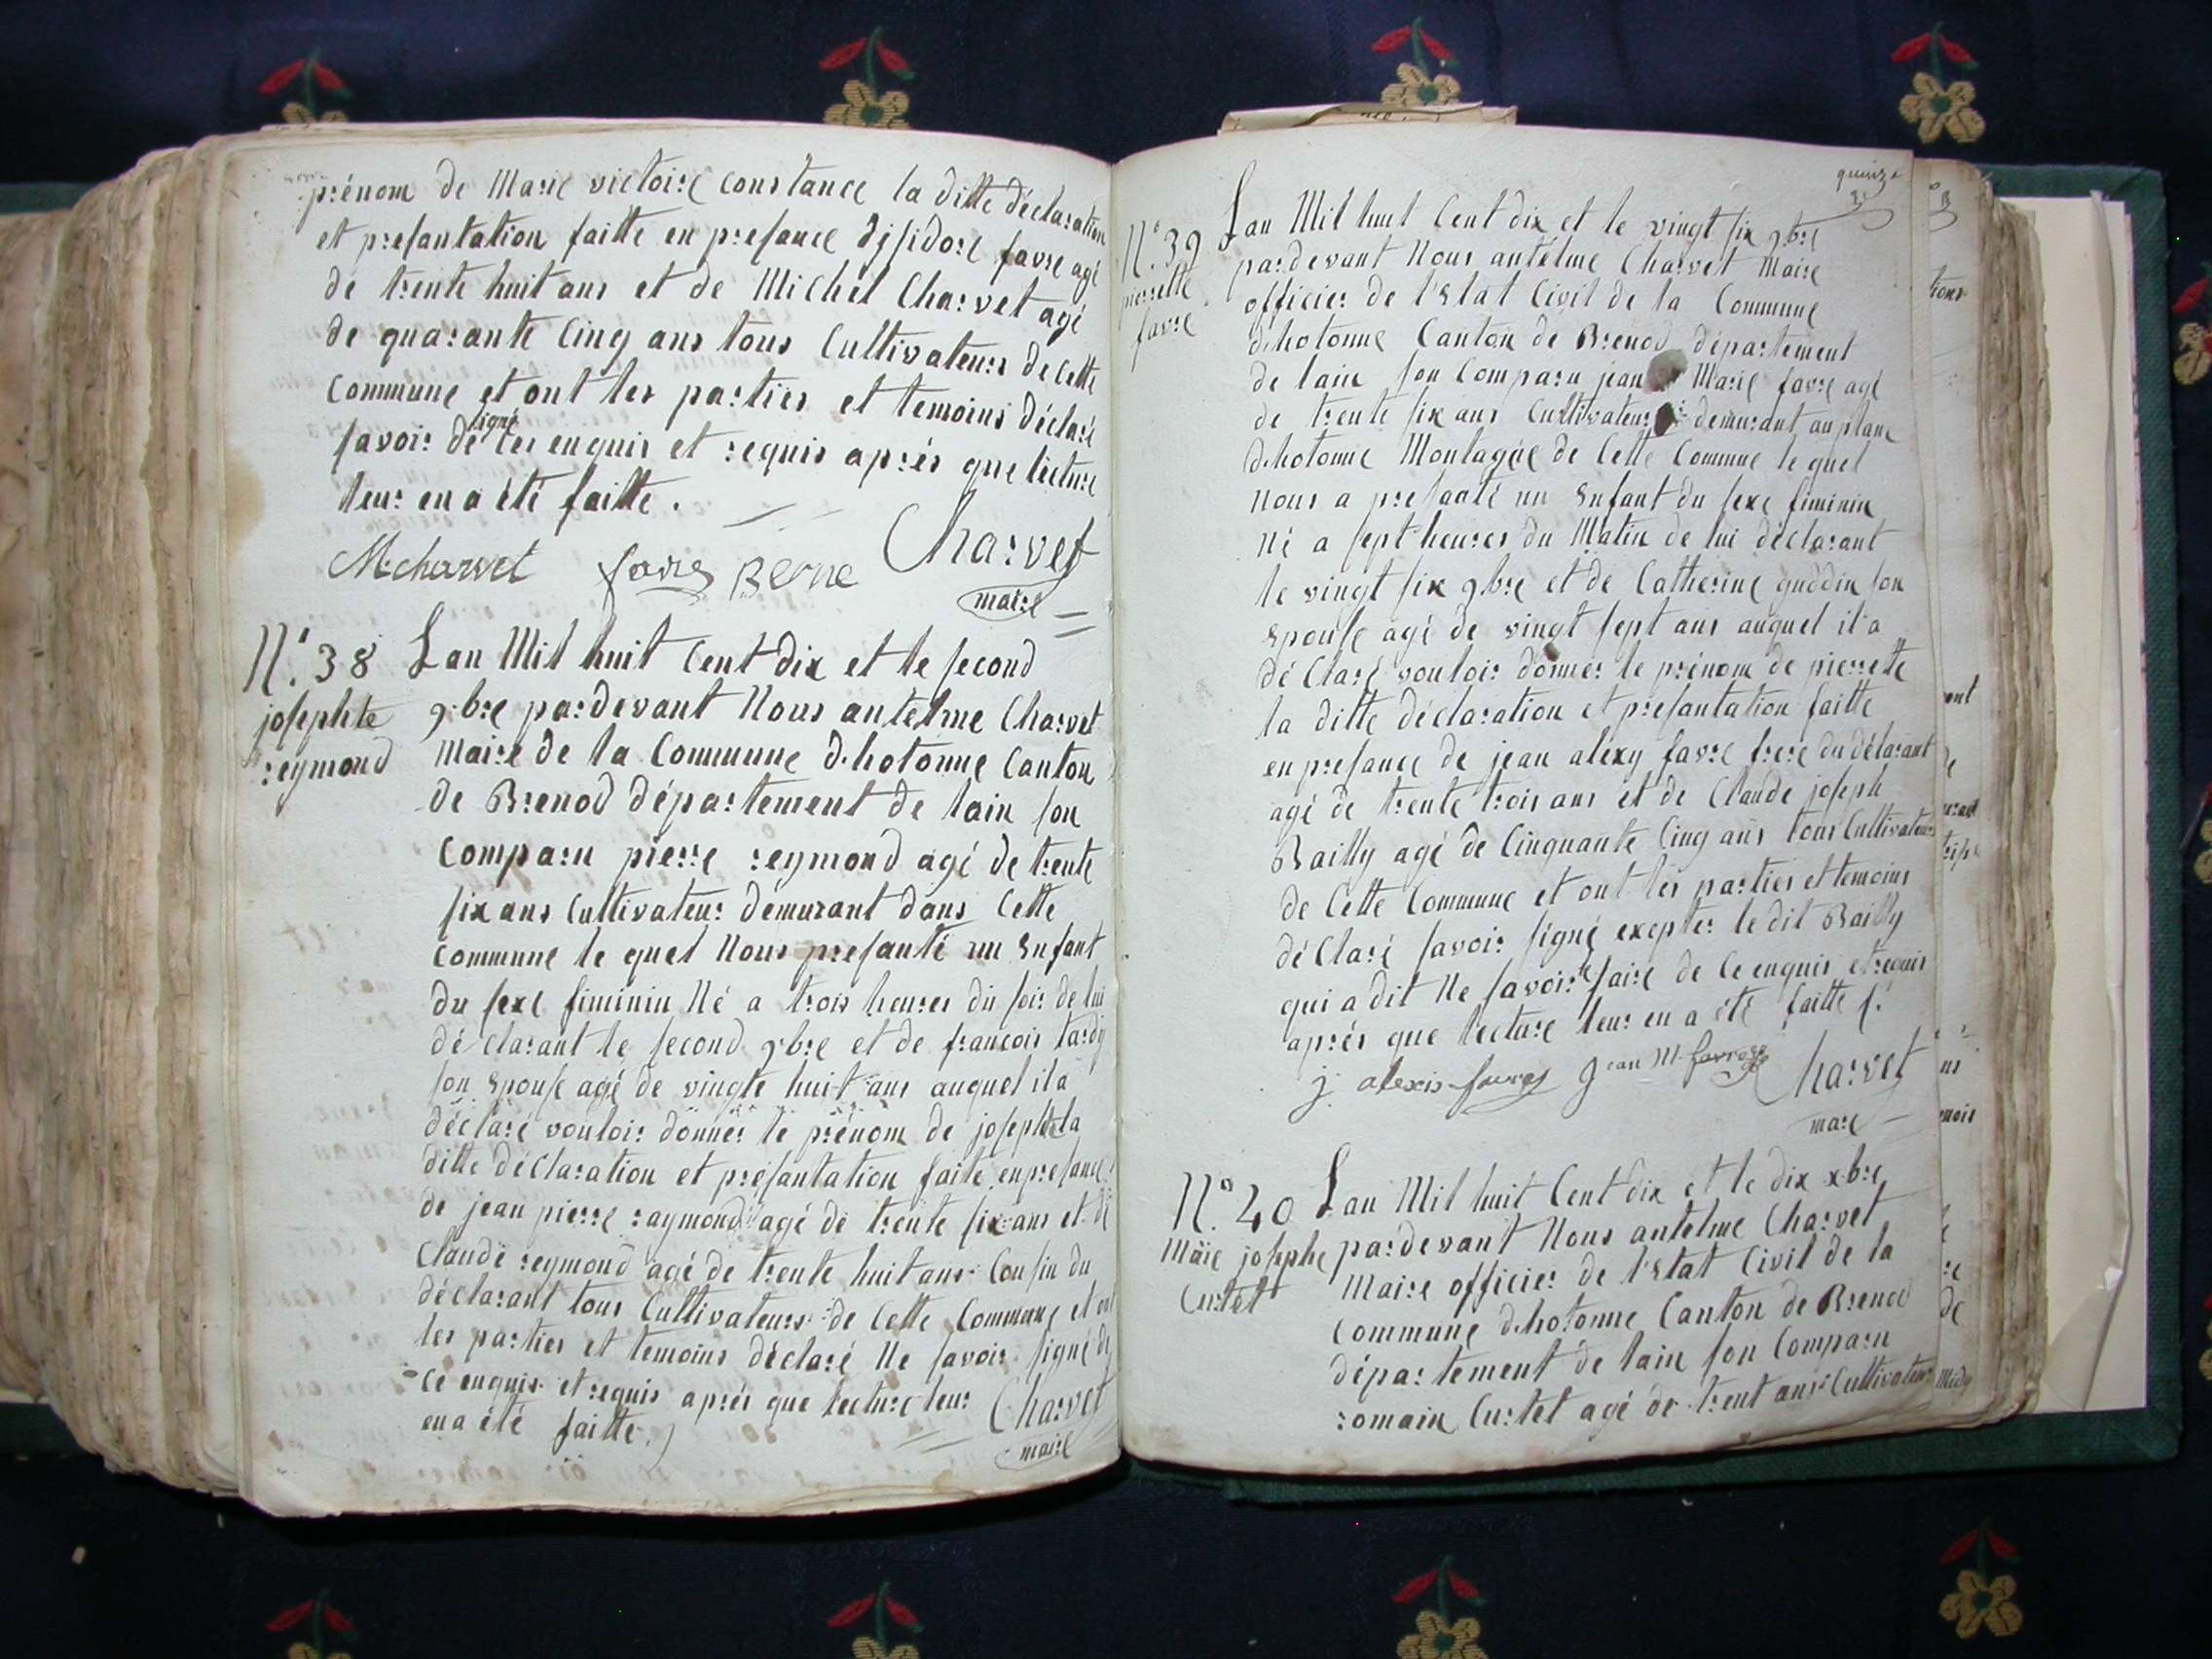 prénom de Marie victoire constance la ditte déclaration
et presantation faitte en presance djsidore favre agé
de trente huit ans et de Michel Charvet agé
de quarante Cinq ans tous Cultivateurs de Cette
Commune et ont les parties et temoins déclaré
signé
savoir de ces enquis et requis après que lecture
leur en a été faitte.
M. charvet favre Berne Charvet
maire
N.° 38
josephte
reymond
Lan Mil huit Cent dix et le second
9.bre pardevant Nous antelme Charvet
Maire de la Commune d.hotonne Canton
de Brenod département de lain son
Comparu pierre reymond agé de trente
six ans Cultivateur démurant dans Cette
Commune le quel Nous presanté un Enfant
du sexe fiminin Né a trois heures du soir de lui
déclarant le second 9.bre et de francois tardy
son Epouse agé de vingte huit ans auquel il a
déclaré vouloir donner le prénom de josephte la
ditte déclaration et présantation faite en presance
de jean pierre raymond agé de trente six ans et de
Claude reymond agé de trente huit ans Cousin du
déclarant tous Cultivateurs de Cette Commune et ont
les parties et temoins déclaré Ne savoir signé de
Ce enquis et requis après que lecture leur
en a été faitte.
Charvet
maire
quinze
N.° 39
pierrette
favre
Lan Mil huit Cent dix et le vingt six 9bre
pardevant Nous antélme Charvet Maire
officier de l'Etat Civil de la Commune
d.hotonne Canton de Brenod département
de lain son Comparu jean Marie favre agé
de trente six ans Cultivateur demurant au plane
d.hotonne Montagée de Cette Commune le quel
Nous a presanté un Enfant du sexe fiminin
Né a sept heures du Matin de lui déclarant
le vingt six 9bre et de Catherine guödin son
Epouse agé de vingt sept ans auquel il a
déClaré vouloir donner le prénom de pierrette
la ditte déclaration et presantation faitte
en presance de jean alexy favre frere du délarant
agé de trente trois ans et de Claude joseph
Bailly agé de Cinquante Cinq ans tous Cultivateurs
de Cette Commune et ont les parties et temoins
déClaré savoir signé exepter le dit Bailly
qui a dit Ne savoir le faire de Ce enquis et requis
après que lecture leur en a été faitte s.
j. alexis favre jean M. favre Charvet
mare
N.° 40
Marie josephe
Curtet
Lan Mil huit Cent dix et le dix x.bre
pardevant Nous antelme Charvet
Maire officier de l'Etat Civil de la
Commune d.hotonne Canton de Brenod
département de lain son Comparu
romain Curtet agé de trent ans Cultivateur